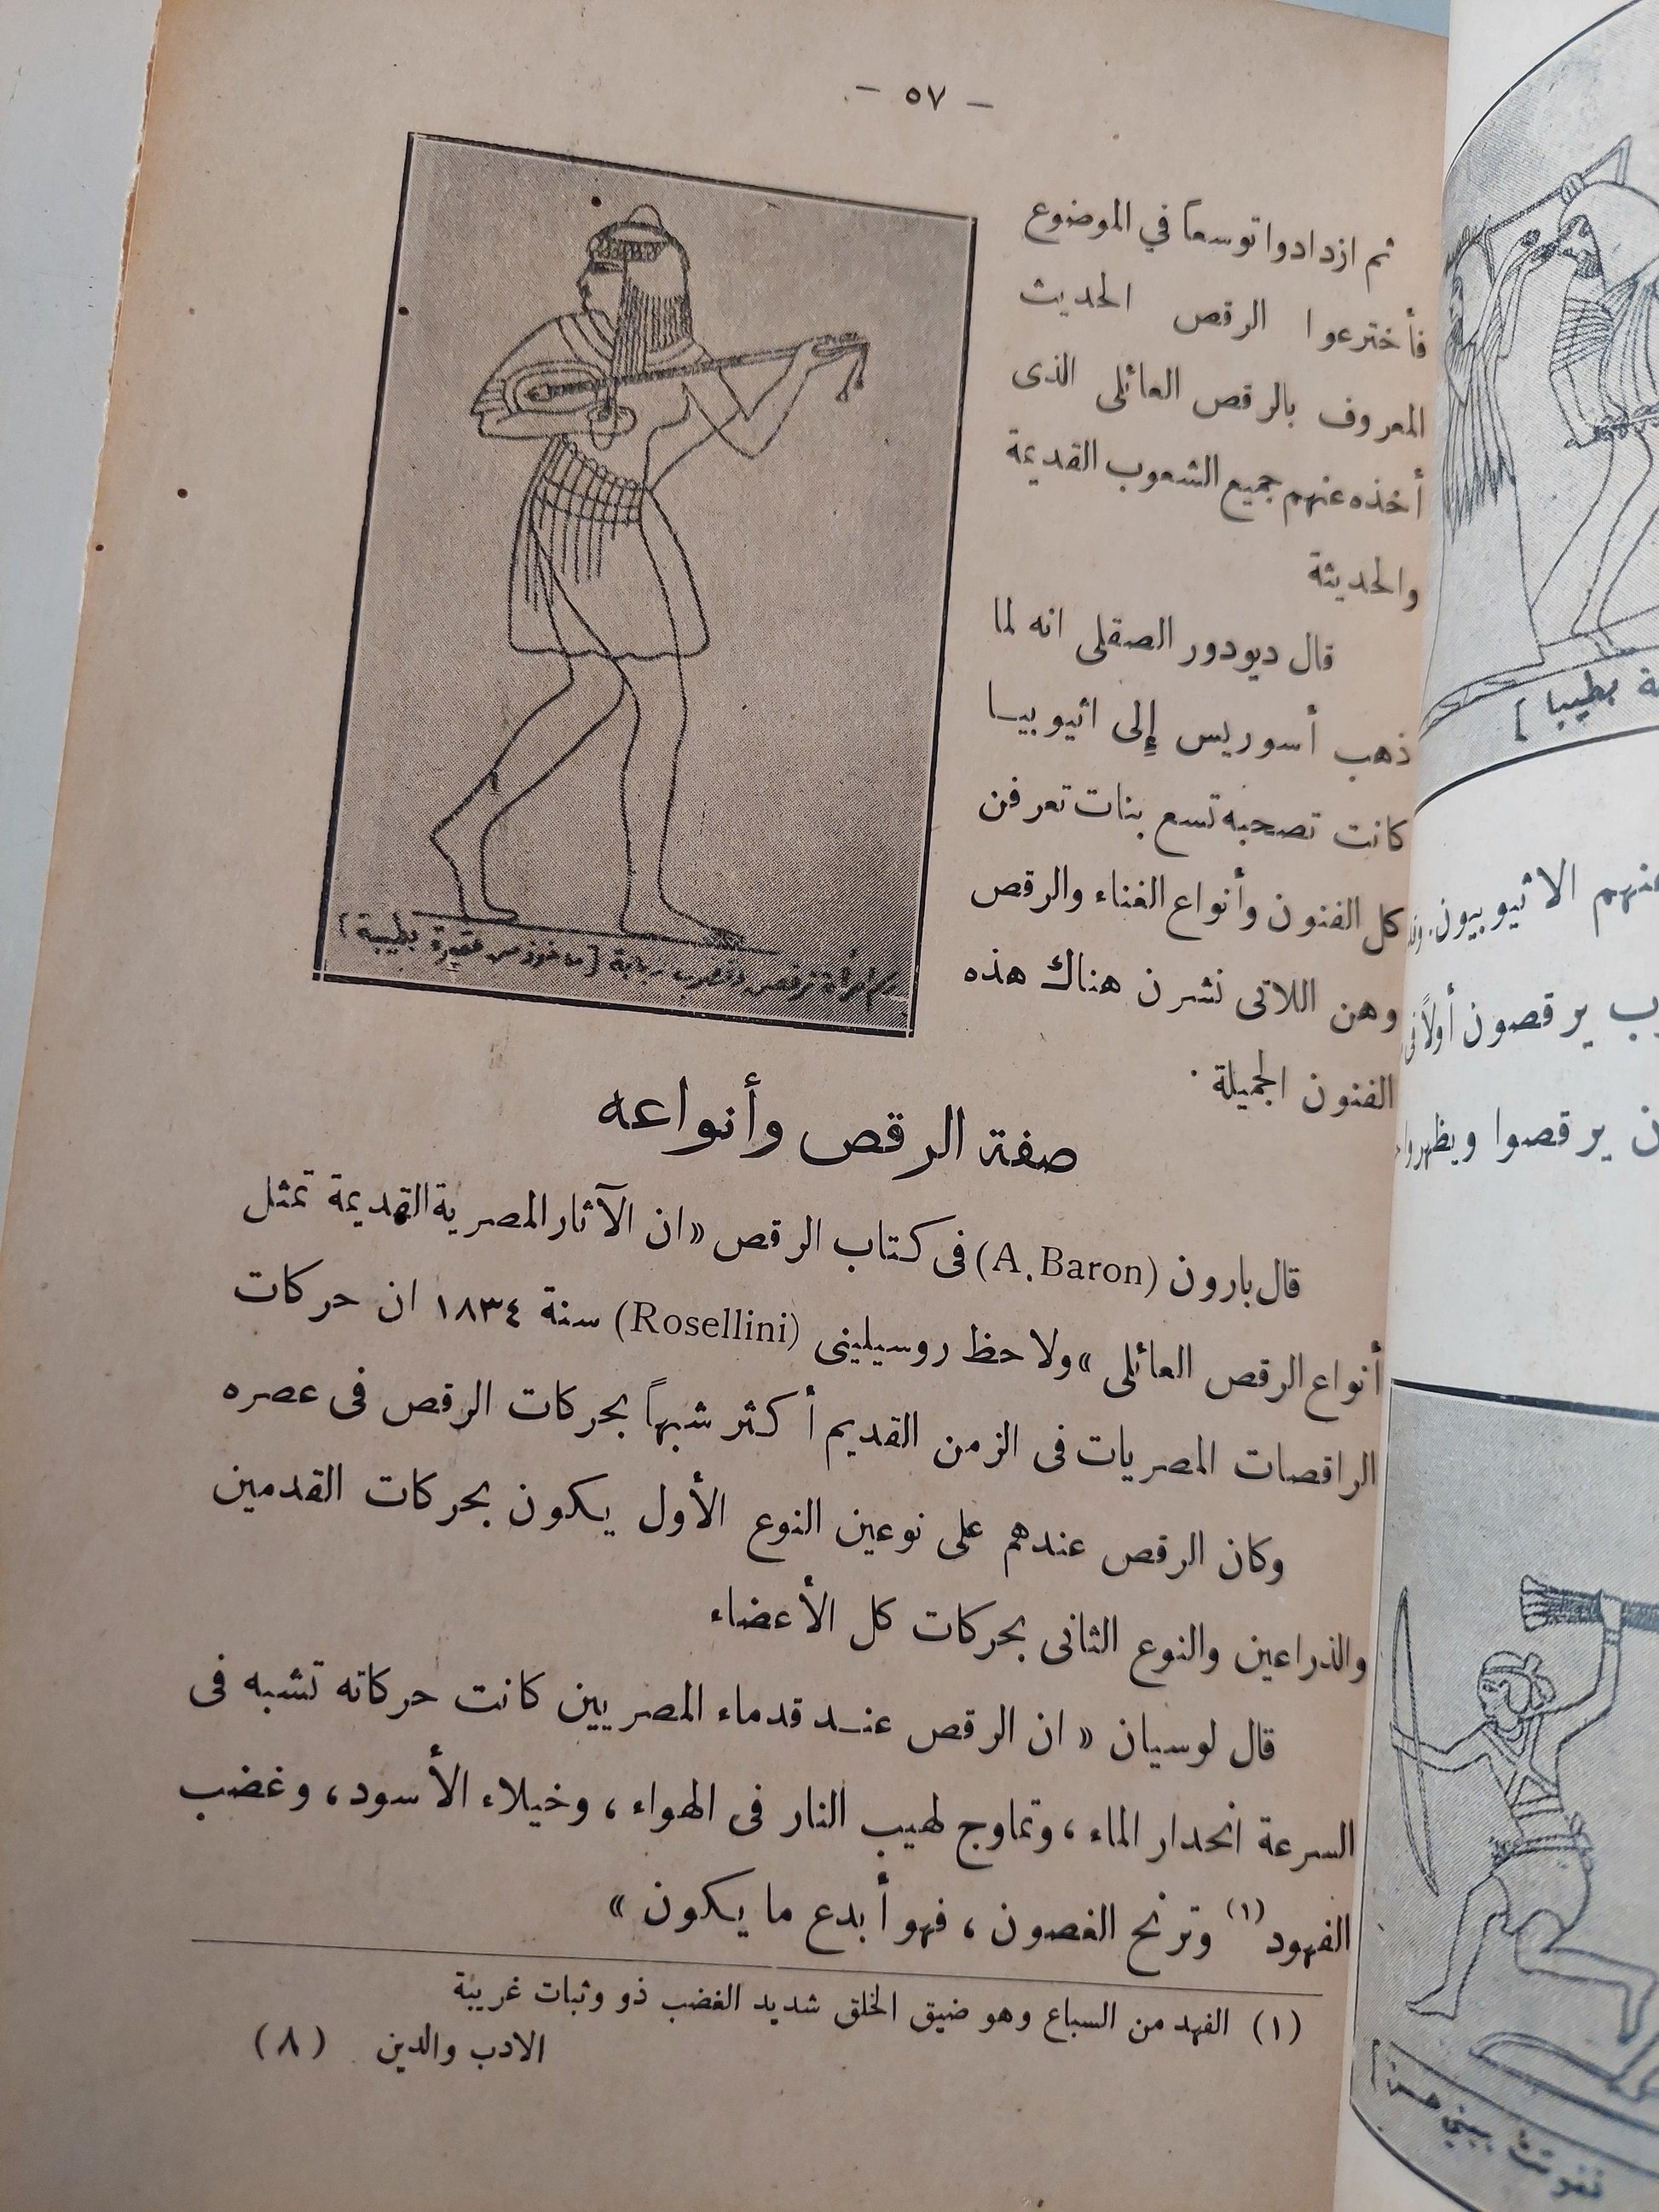 - ٥٧ -
ثم ازدادوا توسعاً في الموضوع
فأخترعوا الرقص الحديث
المعروف بالرقص العائلى الذى
أخذه عنهم جميع الشعوب القديمة
والحديثة
قال ديودور الصقلى انه لما
ذهب أسوريس إلى اثيوبيا
كانت تصحبه تسع بنات تعرفن
كل الفنون وأنواع الغناء والرقص
وهن اللاتى نشرن هناك هذه
الفنون الجميلة .
رسم امرأة ترقص وتضرب ربابة [مأخوذ من مقبرة بطيبة]
صفة الرقص وأنواعه
قال بارون (A. Baron) فى كتاب الرقص « ان الآثار المصرية القديمة تمثل
أنواع الرقص العائلى » ولاحظ روسيلينى (Rosellini) سنة ١٨٣٤ ان حركات
الراقصات المصريات فى الزمن القديم أكثر شبهاً بحركات الرقص فى عصره
وكان الرقص عندهم على نوعين النوع الأول يكون بحركات القدمين
والذراعين والنوع الثانى بحركات كل الأعضاء
قال لوسيان « ان الرقص عند قدماء المصريين كانت حركاته تشبه فى
السرعة انحدار الماء ، وتماوج لهيب النار فى الهواء ، وخيلاء الأسود ، وغضب
الفهود (١) وترنح الغصون ، فهو أبدع ما يكون »
(١) الفهد من السباع وهو ضيق الخلق شديد الغضب ذو وثبات غريبة
الادب والدين (٨)
بطيبا ]
عنهم الاثيوبيون
يرقصون أولاً
يرقصوا ويظهروا
ببنى حسن ]